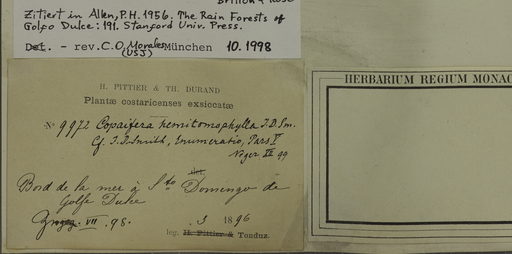 Britton & Rose
Zitiert in Allen, P.H. 1956. The Rain Forests of
Golfo Dulce: 191. Stanford Univ. Press.
Det. - rev. C.O. Morales München 10.1998
(USJ)
H. PITTIER & TH. DURAND
Plantæ costaricenses exsiccatæ
No 9972 Copaifera hemitomophylla J.D.Sm.
Cf. J.D. Smith, Enumeratio, Pars V
99
det.
Bord de la mer à Sto Domingo de
Golfe Dulce
VII 98. 3 1896
leg. H. Pittier & Tonduz.
HERBARIUM REGIUM MONAC